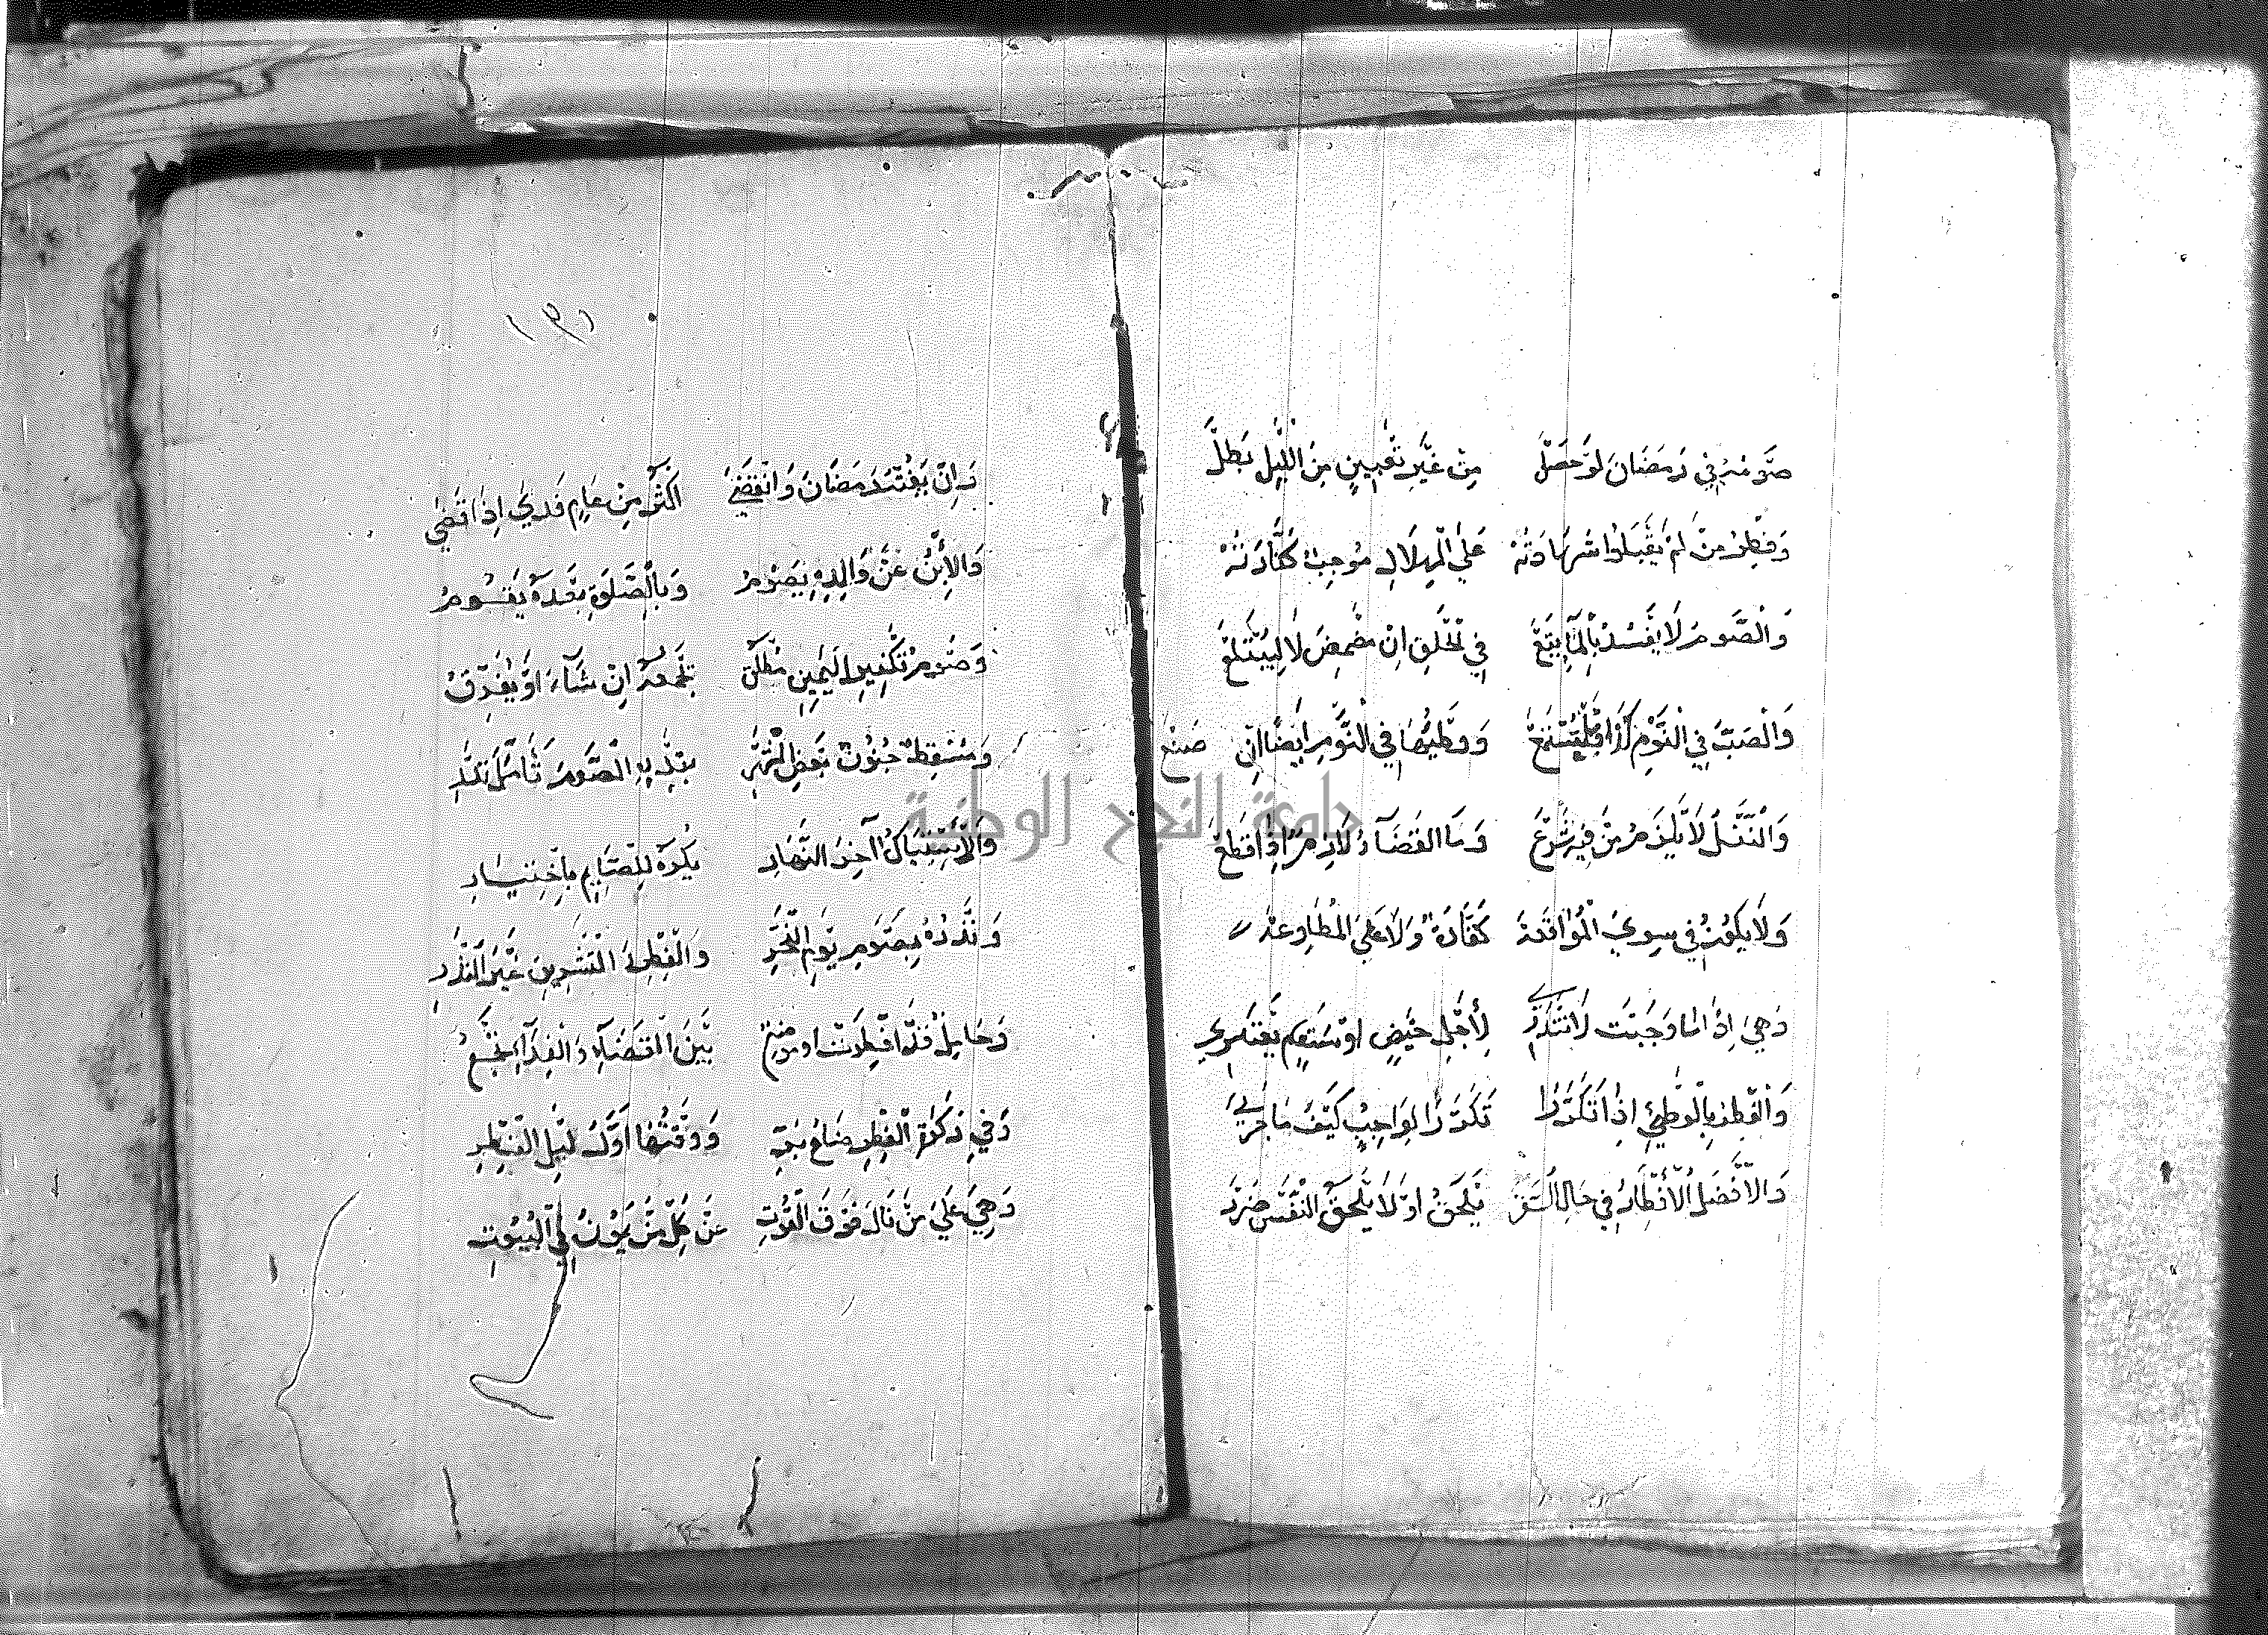 صَوْمُهُ فِي رَمَضَانَ لَوْ حَصَلْ مِنْ غَيْرِ تَعْيِينٍ مِنَ اللَّيْلِ بَطَلْ
وَفِطْرُ مَنْ لَمْ يَقْبَلُوا شَهَادَتُهْ عَلَى الْهِلَالِ مُوجِبٌ كَفَّارَتُهْ
وَالصَّوْمُ لَا يَفْسُدُ بِالْمَاءِ يَقَعْ فِي الْحَلْقِ اِنْ مَضْمَضَ لَا لِيَبْتَلِعْ
وَالصَّبُّ فِي النَّوْمِ كَذَا وَوَطْئِهَا فِي النَّوْمِ اَيْضًا اِنْ صَنَعْ
وَالنَّفْلُ لَا يَلْزَمُ مَنْ فِيهِ شَرَعْ وَمَا الْقَضَاءُ لَازِمًا اِذَا قَطَعْ
وَلَا يَكُونُ فِي سِوَى الْمُوَاقَعَهْ كَفَّارَةٌ وَلَا عَلَى الْمُطَاوِعَهْ
وَهِيَ اِذَا مَا وَجَبَتْ لَا تَنْدَرِي لِأَجْلِ حَيْضٍ اَوْ سَقَمٍ يَعْتَرِي
وَالْفِطْرُ بِالْوَطْئِ اِذَا تَكَرَّرَا تَكَرُّرًا لِوَاجِبٍ كَيْفَ مَا جَرَى
وَالْأَفْضَلُ الْأَفْطَارُ فِي حَالِ السَّفَرْ يَلْحَقُ اَوْ لَا يَلْحَقُ النَّفْسَ ضَرَرْ
١٩٢
وَاِنْ يَفُتْ رَمَضَانَ وَانْقَضَى اَكْثَرُ مِنْ عَامٍ فَدَى اِذَا قَضَى
وَالْاِبْنُ عَنْ وَالِدِهِ يَصُومُ وَبِالصَّلَوةِ بَعْدَهُ يَقُومُ
وَصَوْمُ تَكْفِيرِ الْيَمِينِ مُطْلَقُ يَجْمَعُهُ اِنْ شَاءَ اَوْ يُفَرِّقُ
وَمُسْقِطٌ جُنُونُ بَعْضِ الشَّهْرِ بِقَدْرِهِ الصَّوْمَ
وَالْاِسْتِيَاكُ آخِرَ النَّهَارِ يُكْرَهُ لِلصَّائِمِ بِاخْتِيَارِ
وَنَذْرُهُ بِصَوْمِ يَوْمِ النَّحْرِ وَالْفِطْرِ وَالتَّشْرِيقِ غَيْرُ النَّذْرِ
وَحَامِلٌ قَدْ اَفْطَرَتْ اَوْ مُرْضِعُ بَيْنَ الْقَضَاءِ وَالْفِدَاءِ تَجْمَعُ
وَفِي زَكَوةِ الْفِطْرِ صَاعُ بُرِّ وَوَقْتُهَا اَوَّلُ لَيْلِ الْفِطْرِ
وَهِيَ عَلَى مَنْ نَالَ فَوْقَ الْقُوتِ عَنْ كُلِّ مَنْ يَمُونُ فِي الْبُيُوتِ
جامعة النجاح الوطنية